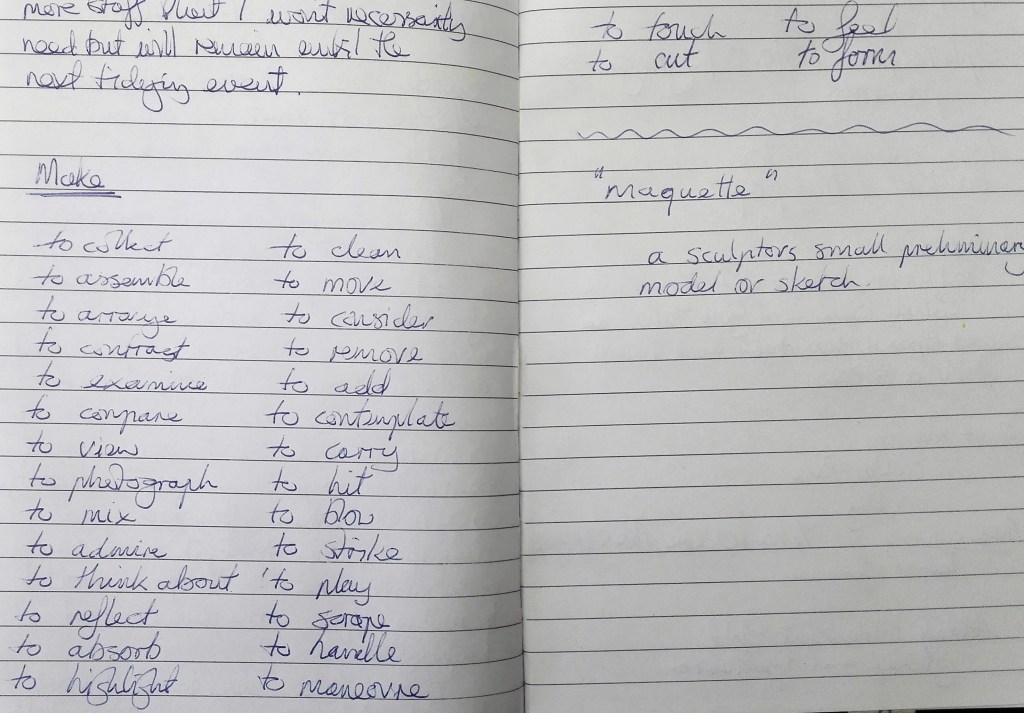 more stuff that I wont necessarily
need but will remain until the
next tidying event.
Make
to collect to clean
to assemble to move
to arrange to consider
to contrast to remove
to examine to add
to compare to contemplate
to view to carry
to photograph to hit
to mix to blow
to admire to strike
to think about to play
to reflect to scrape
to absorb to handle
to highlight to maneovre
to touch to feel
to cut to form
"maquette"
a sculptors small preliminary
model or sketch.